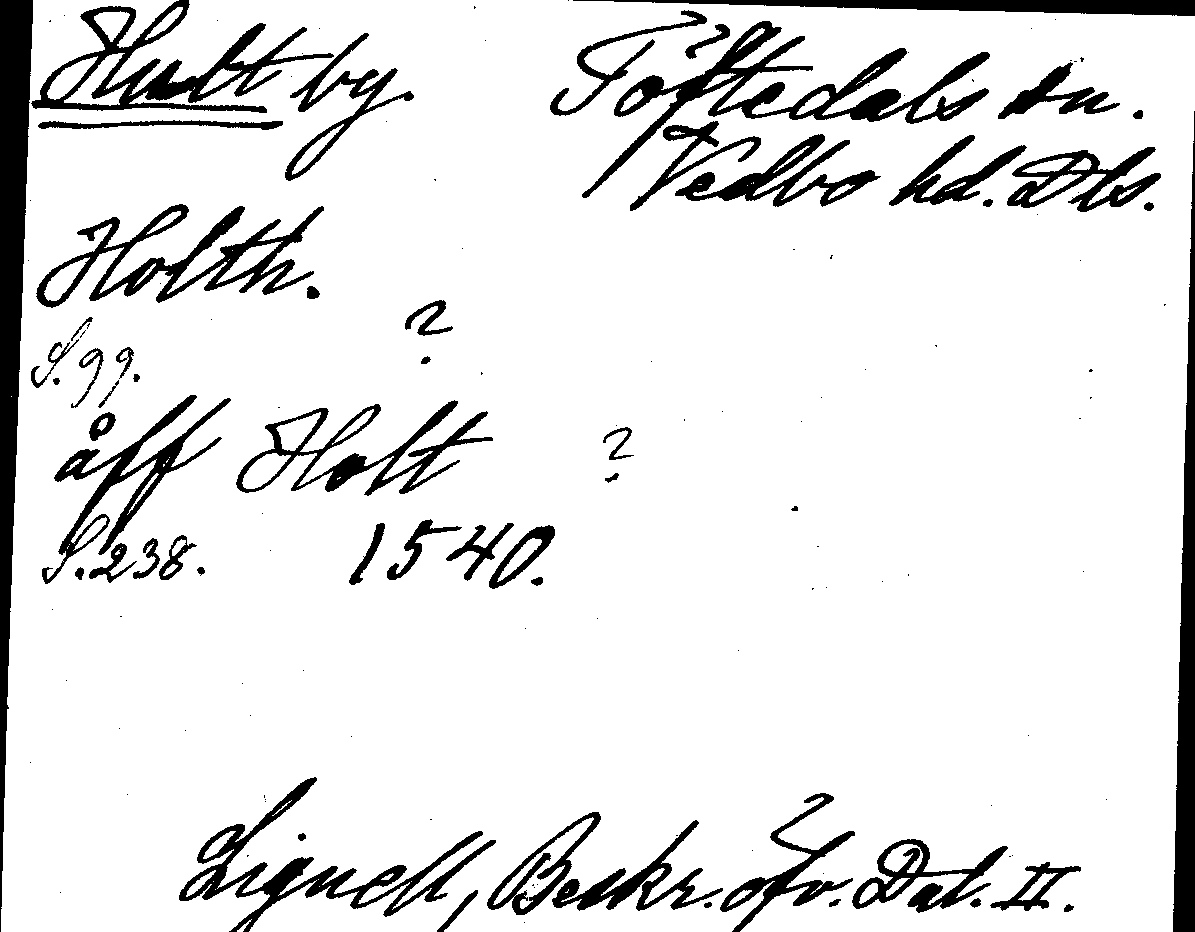 Hult by. Töftedals sn.
Vedbo hd. Dls.
Holth.
?
S. 99.
åff Holt ?
S. 238. 1540.
Lignell, Beskr. öfv. Dal. II.